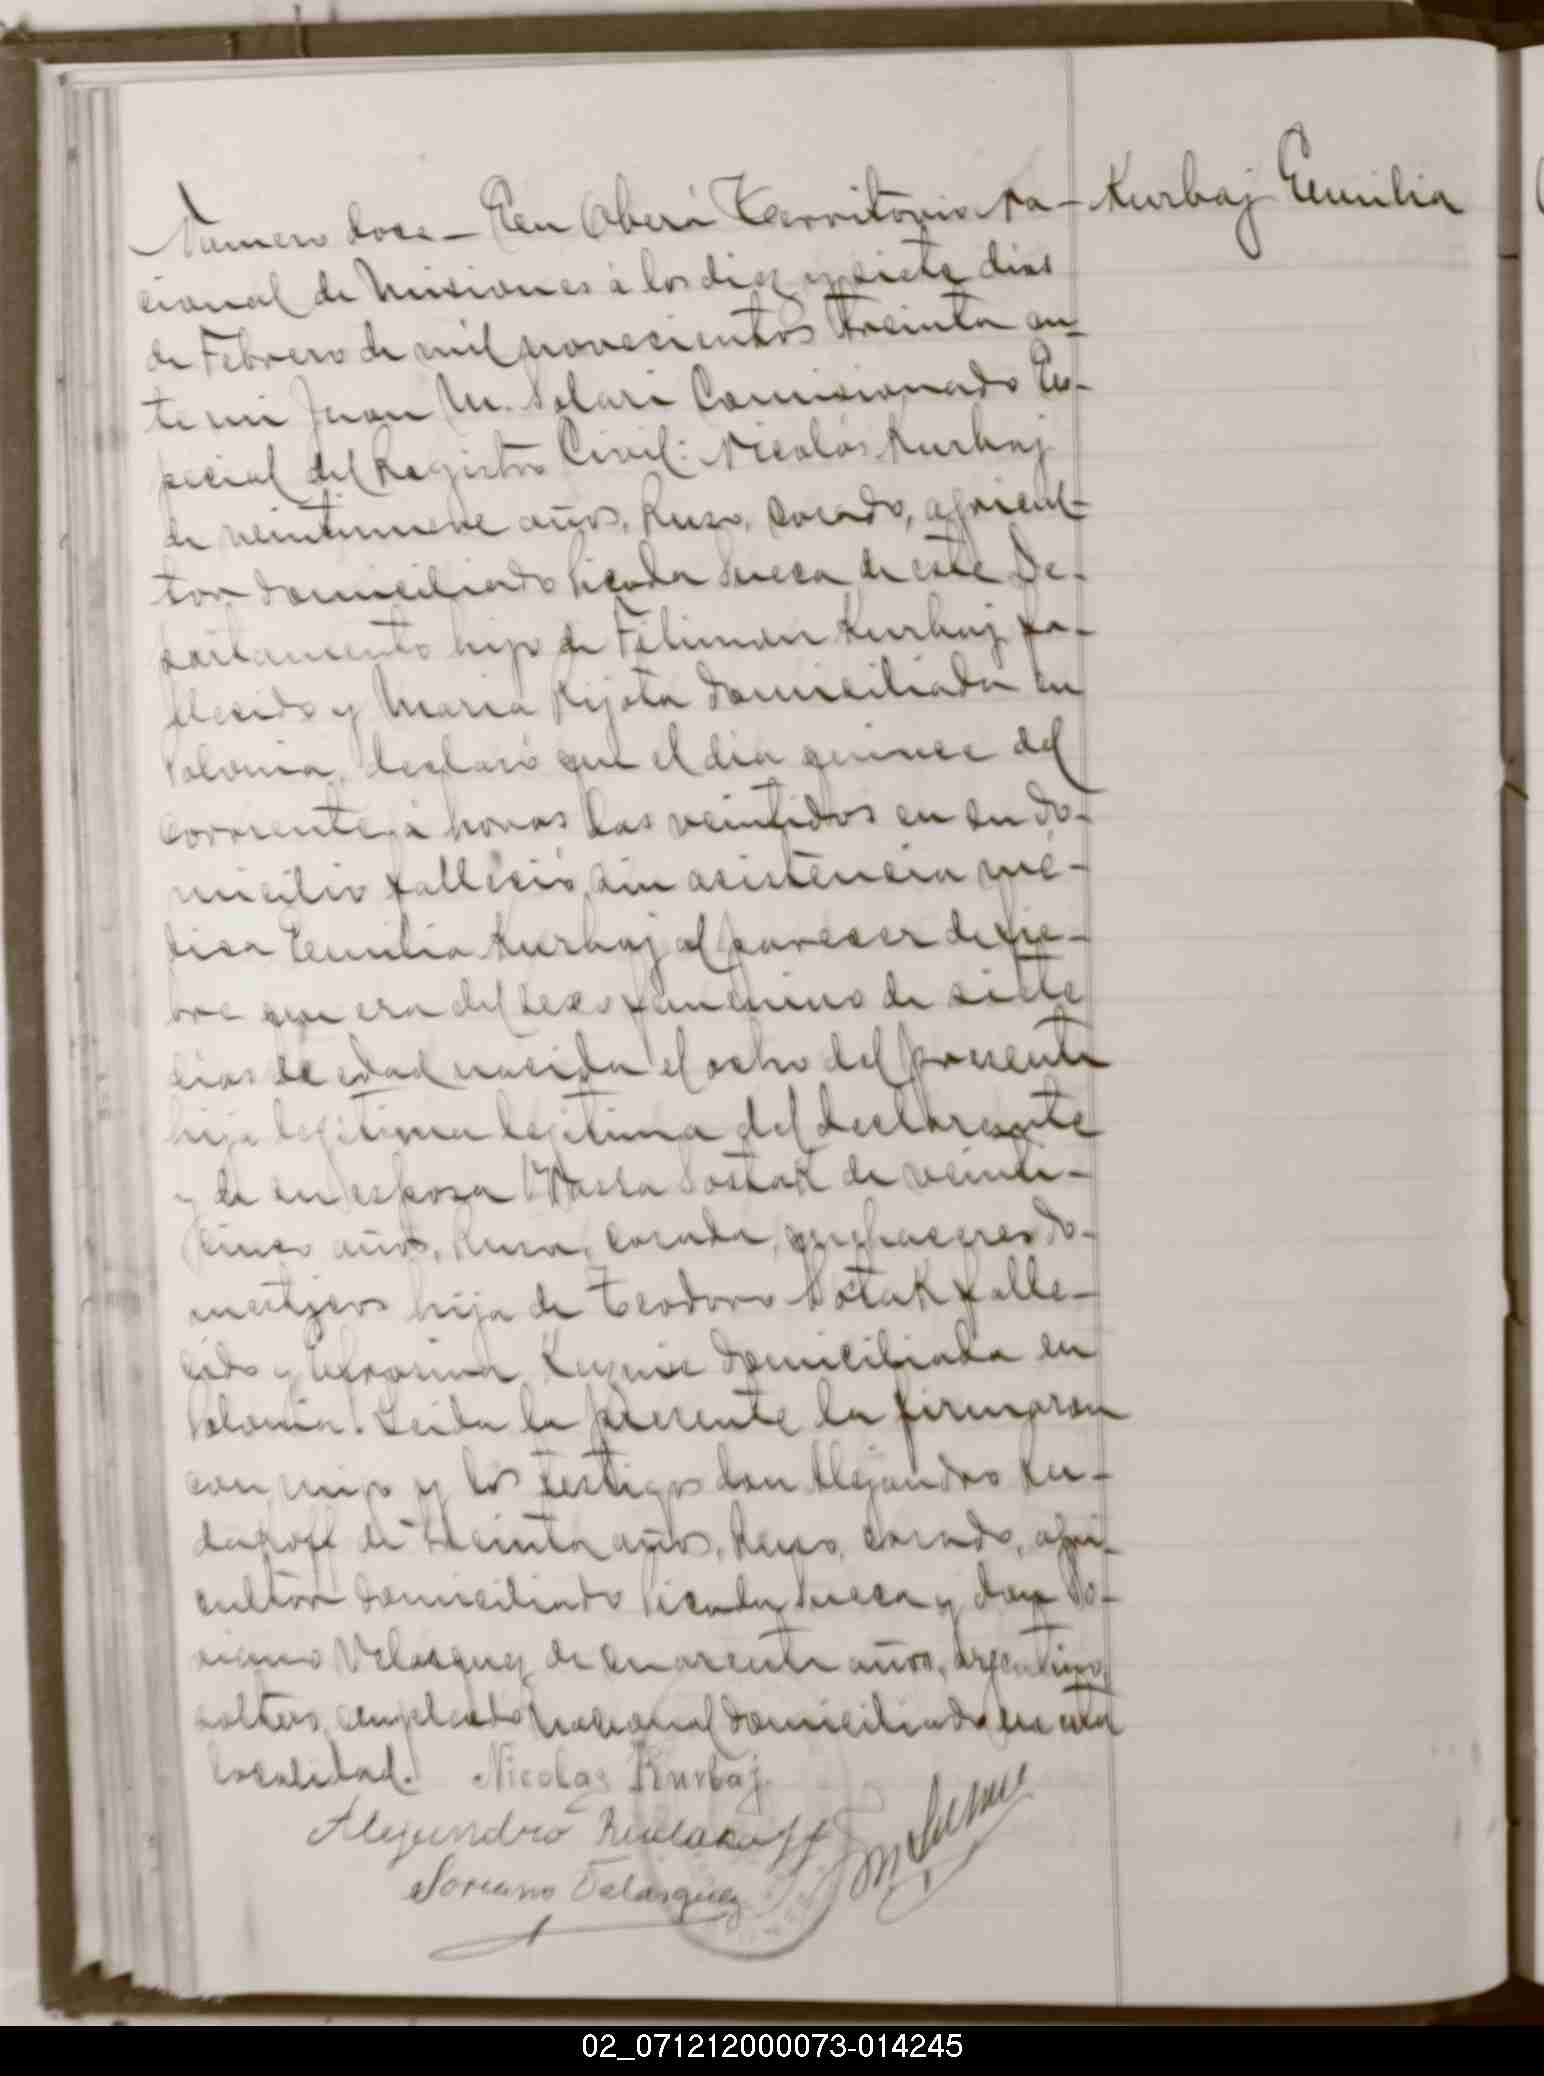 Numero doce – En Oberá Territorio Na-
Kurbaj Emilia
cional de Misiones á los diez y siete dias
de Febrero de mil novecientos treinta an-
te mi Juan M. Solari Comisionado Es-
pecial del Registro Civil: Nicolás Kurbaj
de veintinueve años, Ruso, casado, agricul-
tor domiciliado Picada Sueca de este De-
partamento hijo de Filimon Kurbaj fa-
llecido y Maria Rijota domiciliada en
Polonia, declaró que el dia quince del
corriente á horas las veintidos en su do-
micilio falleció sin asistencia mé-
dica Emilia Kurbaj al parecer de fie-
bre que era del sexo femenino de siete
dias de edad nacida el ocho del presente
hija legitima legitima del declarante
y de su esposa Sostak de veinti-
cinco años, Rusa, casada, quehaceres do-
mesticos hija de Teodoro Sostak falle-
cido y domiciliada en
Polonia. Leida la presente la firmaron
conmigo y los testigos don Alejandro Ku-
dakoff de treinta años, Ruso, casado, agri-
cultor domiciliado Picada Sueca y don So-
riano Velasquez de cuarenta años, argentino,
soltero, empleado nacional domiciliado en esta
localidad. Nicolas Kurbaj
Alejandro
Soriano Velasquez